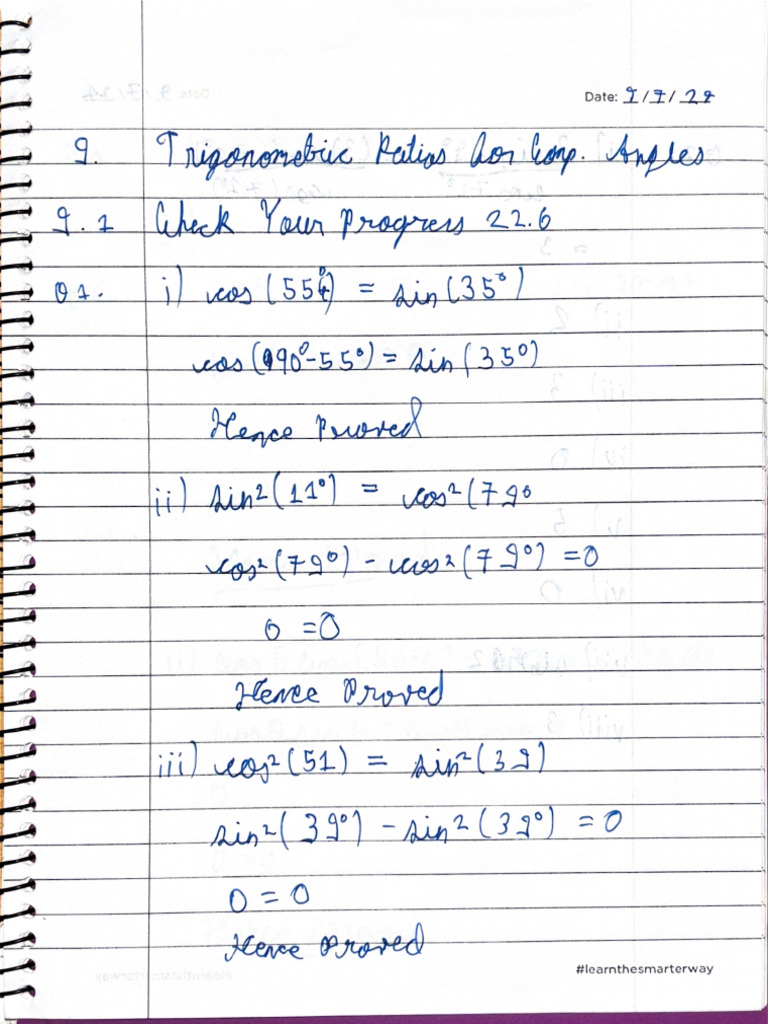 Date: 9/7/24
9. Trigonometric Ratios for Comp. Angles
9.1 Check Your Progress 22.6
Q1. i) cos (55°) = sin (35°)
cos (90°-55°) = sin (35°)
Hence Proved
ii) sin²(11°) = cos²(79°
cos²(79°) - cos²(79°) = 0
0 = 0
Hence Proved
iii) cos²(51) = sin²(39)
sin²(39°) - sin²(39°) = 0
0 = 0
Hence Proved
#learnthesmarterway